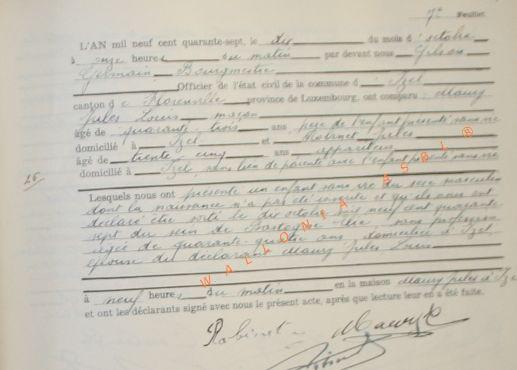 7e Feuillet.
L'AN mil neuf cent quarante-sept, le dix du mois d'octobre
à onze heures du matin par devant nous Gilson
Germain Bourgmestre
Officier de l'état civil de la commune d'Izel
canton de Florenville province de Luxembourg, ont comparu: Maury
Jules Louis, maçon
âgé de quarante-trois ans père de l'enfant présenté sans vie
domicilié à Izel et Robinet Jules
âgé de trente cinq ans appariteur
domicilié à Izel sans lien de parenté avec l'enfant présenté sans vie
25
Lesquels nous ont présenté un enfant sans vie du sexe masculin
dont la naissance n'a pas été constatée et qu'ils nous ont
déclaré être sorti le dix octobre mil neuf cent quarante
sept du sein de Bastogne sans profession
âgée de quarante-quatre ans, domiciliée à Izel,
épouse du déclarant Maury Jules Louis
WALLONIA ASBL ®
à neuf heures du matin en la maison Maury Jules à Izel
et ont les déclarants signé avec nous le présent acte, après que lecture leur en a été faite.
Robinet Maury